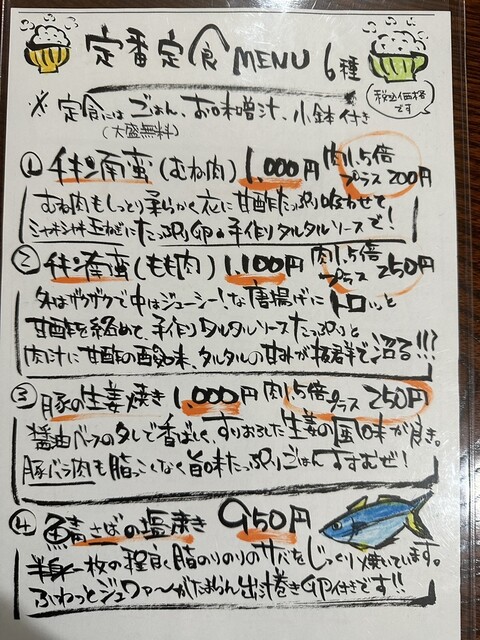 定番定食MENU 6種
税込価格です
※定食にはごはん、お味噌汁、小鉢付き
(大盛無料)
① チキン南蛮(むね肉) 1,000円 肉1.5倍プラス200円
むね肉もしっとり柔らかく衣に甘酢たっぷり吸わせて
シャキシャキ玉ねぎにたっぷり卵の手作りタルタルソースで!
② チキン南蛮(もも肉) 1,100円 肉1.5倍プラス250円
外はザクザクで中はジューシー!な唐揚げにトロッと
甘酢を絡めて手作りタルタルソースたっぷりと
肉汁に甘酢の酸味、タルタルの甘みが抜群で沼る!!!
③ 豚の生姜焼き 1,000円 肉1.5倍プラス250円
醤油ベースのタレで香ばしく、すりおろした生姜の風味が良き。
豚バラ肉も脂っこくなく旨味たっぷりごはんすすむぜ!
④ 鯖さばの塩焼き 950円
半身一枚の程良く脂のりのりのサバをじっくり焼いています。
ふわっとジュワァ〜がたまらん出汁巻き卵付きです!!